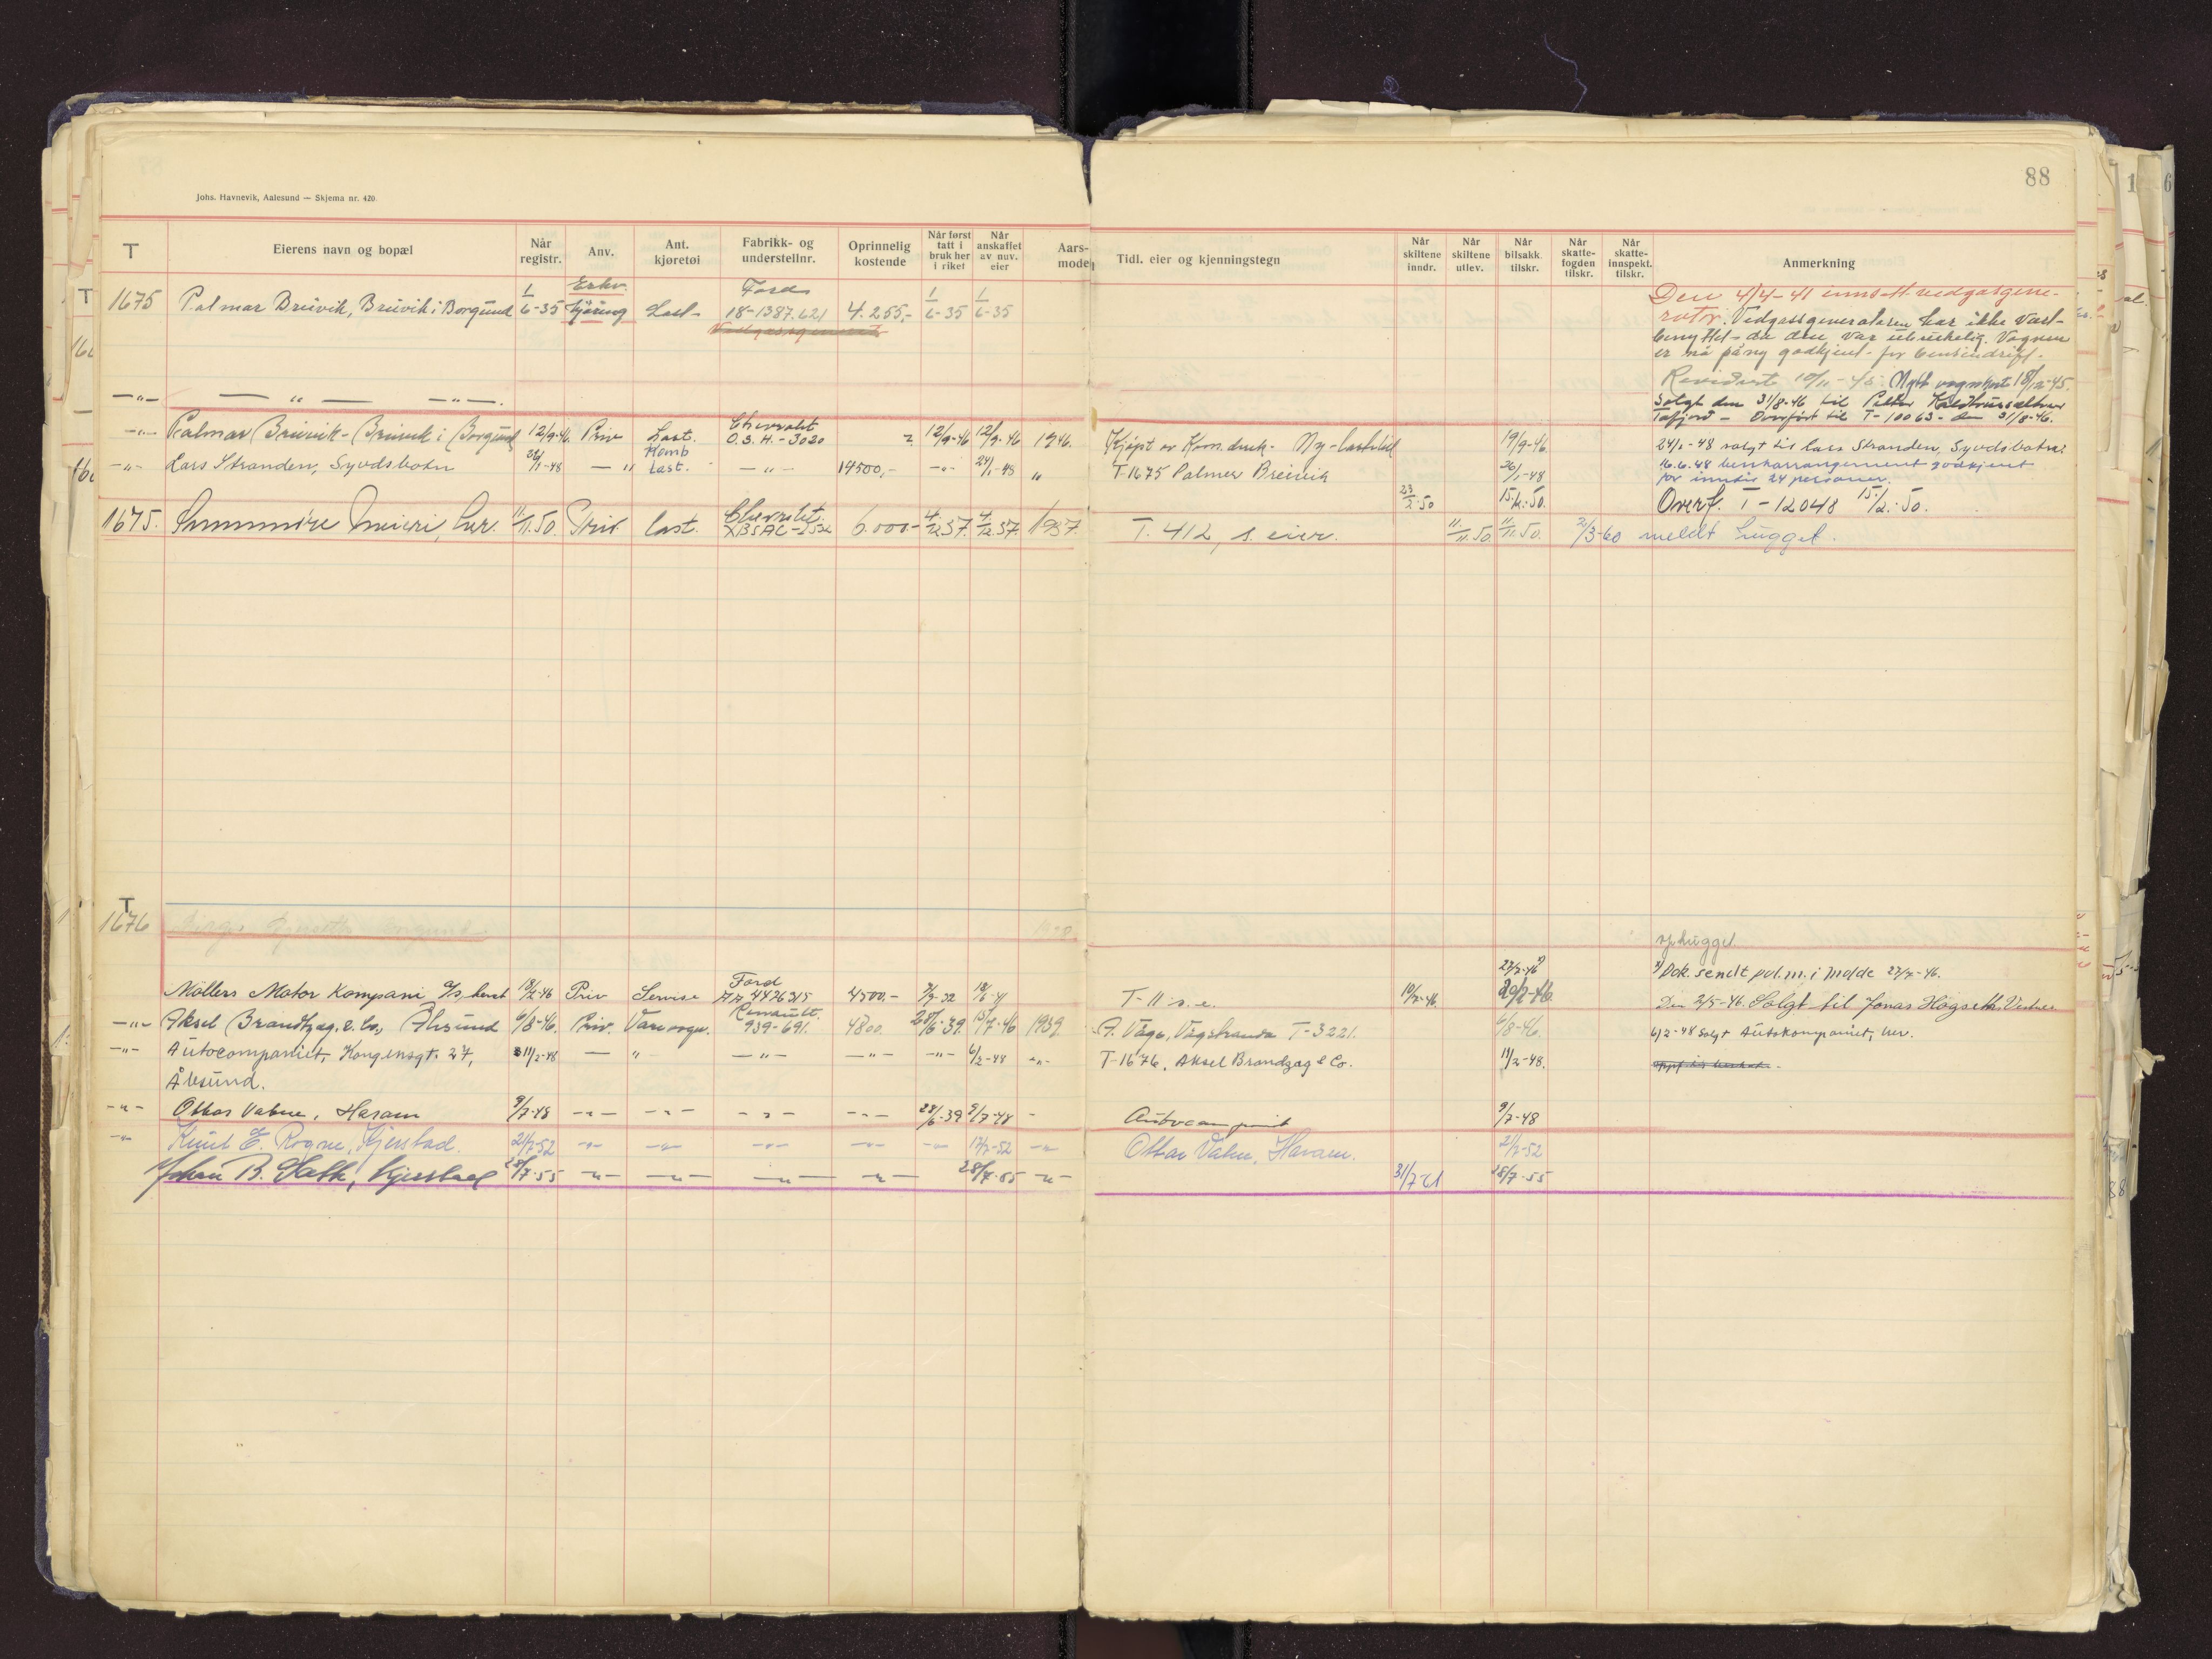 88
Johs. Havnevik, Aalesund — Skjema nr. 420
T
Eierens navn og bopæl
Når registr.
Anv.
Ant. kjøretøi
Fabrikk- og understellnr.
Oprinnelig kostende
Når først tatt i bruk her i riket
Når anskaffet av nuv. eier
Aars- model
Tidl. eier og kjenningstegn
Når skiltene inndr.
Når skiltene utlev.
Når bilsakk. tilskr.
Når skatte- fogden tilskr.
Når skatte- innspekt. tilskr.
Anmerkning
T
1675 Palmar Breivik, Breivik i Borgund 1/6-35 Erhv. kjøring Last- Ford 18-1387.621 4.255,- 1/6-35 1/6-35
Vedgassgenerator
Den 4/4-41 innsatt vedgasgene-
rator. Vedgassgeneratoren har ikke vært
benyttet da den var ubrukelig. Vognen
er nå påny godkjent for bensindrift.
Revidert 10/11-45. Nytt vognkort 18/12-45.
—"— — " — —"—.
Solgt den 31/8-46 til Petter
Tafjord - Overført til T-10063- den 31/8-46.
—"— Palmar Breivik - Breivik i Borgund 12/9-46 Priv Last. Chevrolet O.S.H.-3020 ? 12/9-46 12/9-46 1946. Kjøpt av Ny-lastebil 19/9-46 24/1-48 solgt til Lars Stranden, Syvdsbotn.
—"— Lars Stranden, Syvdsbotn 24/1-48 — " Komb Last. —"— 14500,- —"— 24/1-48 " T-1675 Palmer Breivik 26/1-48 16.6.48 benkarrangement godkjent
for inntil 24 personer.
23/2.50 15/2.50. Overf. T-12048 15/2.50.
1675. Sunnmøre Meieri, her. 11/11.50. Priv. last. Chevrolet 6.000- 4/12.37. 4/12.37. 1937. T. 412, s. eier. 11/11.50 11/11.50. 2/3-60 meldt hugget.
T
1676
ophugget
27/7-46 x) x) Dok. sendt pol.m. i Molde 27/7-46.
Møllers Motor Kompani A/S, herst 18/2-46 Priv Servise Ford AA 4476315 4500.- T-11 s.e. 10/7-46 Den 2/5-46. Solgt til Jonas Hogseth,
—"— Aksel Brandtzæg & Co, Ålesund 6/8-46. Priv. Varevogn. Renault. 939-691. 4800. 28/6-39. 15/7-46 1939. A. Våge, Vågstranda T-3221. 6/8-46. 6/2-48 solgt Autokompaniet, her.
—"— Autocompaniet, Kongensgt. 27, 11/2-48 — " —"— —"— —"— 6/2-48 —"— T-1676, Aksel Brandzæg & Co. 11/2-48.
Ålesund.
—"— Ottar Vatne, Haram 9/7-48 —"— —"— —"— —"— 28/6-39 9/7-48 — Autocompaniet 9/7-48
—"— Knut E. Rogne, Kjerstad. 21/7-52 —"— —"— —"— —"— —"— 17/7-52 —"— Ottar Vatne, Haram. 21/7-52
Johan B. Slath, Kjerstad 28/7-55 —"— —"— —"— —"— 28/7-55 —"— 31/7-61 28/7-55